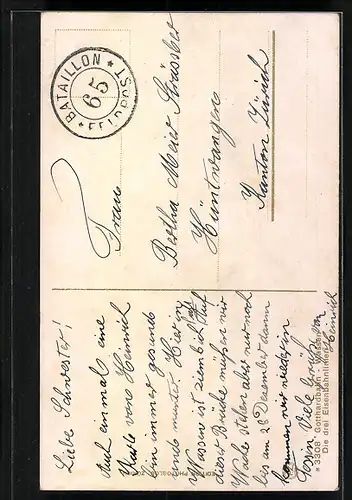 BATAILLON
65
FELDPOST
Frau
Bertha Meier Strässler
Hüntwangen
Kanton Zürich
Liebe Schwester!
Auch einmal eine
Karte vone Heinrich
bin immer gesund
und munter. Hier in
Wassene ist ziemlich kalt Auf
dieser Brücke müßen wir
Wache stehen aber nur noch
bis am 28 Dezember dann
kommen wir wieder in
Tessin Viele Grüße von
Heinrich
3308 Gotthardbahn Wassen
Die drei Eisenbahnlinien